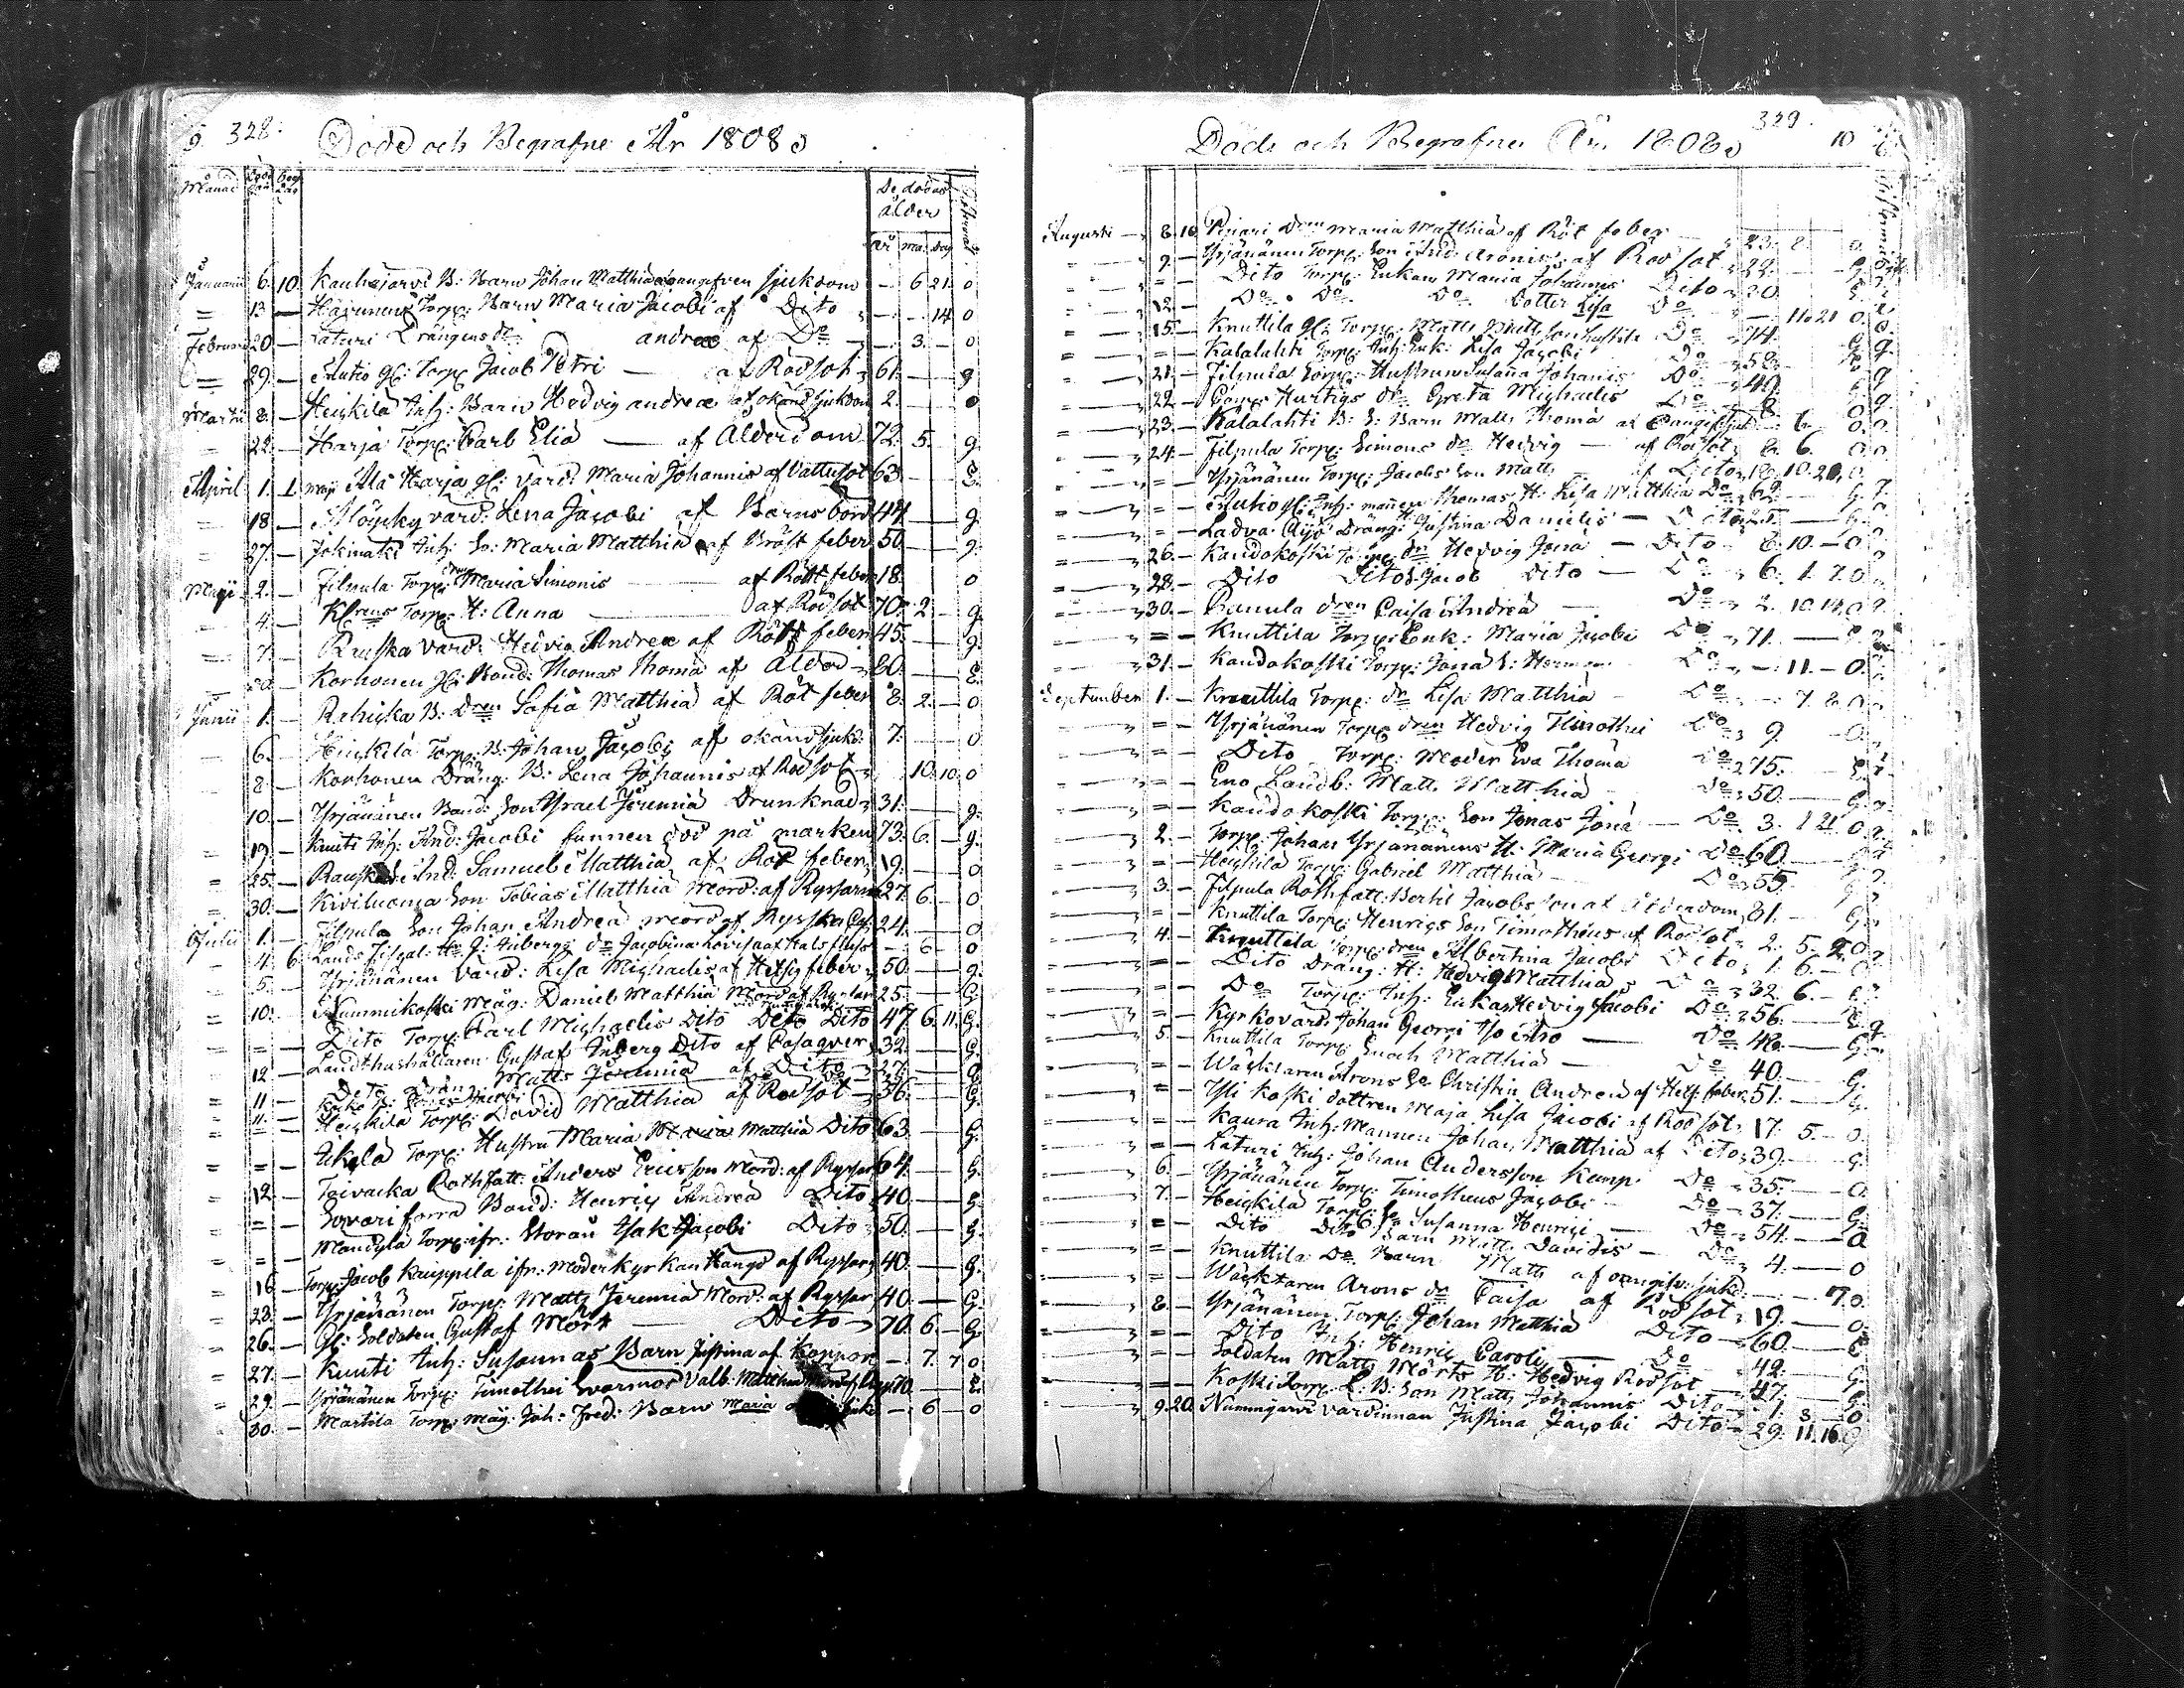 9. 328.
Döde och Begrafne År 1808
Månad Död dag Begr dag De dödas ålder
år ma: dag
Januarii 6. 10. Kauhajärvi B: Barn Johan Matthiæ oangifven sjukdom — 6 21 o
= 13 — Torp: Barn Maria Jacobi af Dito — — 14 o
Februarii 20 — Laturi Drängens dr: andreæ af Do — 3. — o
= 29. — Autio gl: Torp: Jacob Petri — af Rödsot 61. — — g
Martii 8. — Heickilä Inh: Barn Hedvig andreæ af okänd sjukdom 2. — — o
= 22. — Harja Torp: Carl Eliæ — af Ålderdom 72. 5. — g.
April 1. 1. maji Ala Harja gl: värd: Maria Johannis af Vattusot 63. — — E.
= 18 — vard: Lena Jacobi af Barnsbörd 44 — — g.
= 27. — Jokimäki Inh: Maria Matthiæ af Bröst feber 50. — — g.
Maji 2. — Filpula Torp: dren Maria Simonis — af Röt feber 18. — o
= 4. — Torp: H: Anna — af Rödsot 70. 2. — g.
= 7. — Ruska vard: Hedvig Andreæ af Röt feber 45. — — g.
— Korhonen gl: Bond: Thomas Thomæ af Ålderd. 80. — — E.
Junii 1. — Rahicka B: dren Safia Matthiæ af Röt feber 8. 2. — o
6. — Heickilä Torp: B: Johan Jacobi af okänd sjukd: 7. — — o
8. — Korhonen Dräng: B: Lena Johannis af Rödsot — 10. 10. o
10. — Yrjänäinen Bond: Son Israel Jeremiæ Drunknad 31. — — g.
= 19. — Knuti Inh: And: Jacobi funnen död på marken 73. 6. — g.
= 25. — And: Samuel Matthiæ af Röt feber 19. — — o
= 30. — Kiviluoma Son Tobias Matthiæ Mörd: af Ryssarne 27. 6. — o
Julii 1. — Filpula Son Johan Andreæ mörd af Ryssar 24. — — o
— 4. 6. Lands Fiscal: Hr G: Inbergs dr Jacobina Lovisa af Halsfluss — 6 — o
— 5. — Yrjänäinen värd: Lisa Michaelis af Hetsig feber 50. — — g.
= 10. — Nummikoski Måg: Daniel Matthiæ Mörd af Ryssar 25. — — G.
= — Dito Torp: Carl Michaelis Dito Dito Dito 47. 6. 11. G.
12 — Landthushållaren Gustaf Inberg Dito af Cosaquer 32. — — G.
= 11 — Dito Dräng: Matts Jeremiæ af Dito 27. — — g
= 11. — Heickilä Torp: David Matthiæ af Rödsot 36. — — G.
= = — Torp: Hustru Maria Matthiæ Dito 63. — — G.
= = — Toivacka Rothfatt: Anders Ericsson Mörd: af Ryssar 64. — — G.
= 12. — förra Bond: Henric Andreæ Dito 40. — — g.
= = — Mandyla Torp: ifr: Storån Isak Jacobi Dito 50. — — g.
= 16 — Torp: Jacob Kauppila ifr: Moderkyrkan Kangs af Ryssar 40. — — g.
= 23. — Yrjänäinen Torp: Matts Jeremiæ Mörd: af Ryssar 40. — — G.
= 26. — gl: Soldaten Gustaf Mört — Dito 70. 6. — G.
= 27. — Knuti Inh: Susannas Barn Justina af Koppor — 7. 7 o
= 29. — Yrjänäinen Torp: Timothei Svärmor Valb: Matthiæ 70. — — E.
= 30. — Martila Torp: Måg: Joh: Fred: Barn Maria — 6 — o
329. 10
Döde och Begrafne År 1808
Augusti 8. 10. Dren Maria Matthiæ af Röt feber — 23. 8. o
= 9. — Yrjänäinen Torp: Son And: Aronis af Rödsot 22. — G.
= = — Dito Torp: Enkan Maria Johannis Dito 30. —
= 12. — Do Do Do Dotter Lisa Do — 11. 21 o
= 15. — Knuttila gl: Torp: Matts Do 74. — G.
= = — Kalalahti Torp: Inh: Enk: Lisa Jacobi Do 58. —
= 21. — Filpula Torp: Hustrun Susanna Johannis Do 49. —
= 22. — Hurtigs dr Greta Michaelis Do 8.
= 23. — Kalalahti B: S: Barn Matts Thomæ — 6 — o
= 24. — Filpula Torp: Simons dr Hedvig — af Rödsot 6. o
= = — Yrjänäinen Torp: Jacobs Son Matts — af Dito 10. 20. o
= = — Autio gl: Inh: mannen Thomas H: Lisa Matthiæ Do 62. — G.
= = — Ladva Äijö Dräng: H: Justina Danielis — Dito — G.
= 26. — Kandokoski Torp: dr Hedvig Jonæ — Dito 8. 10. — o
= 28. — Dito Dito S: Jacob Dito — Do 6. 1. 7. o
= 30. — Panula dren Caisa Andreæ — Do 2. 10. 14. o
= = — Knuttila Torp: Enk: Maria Jacobi Do 71. —
= 31. — Kandokoski Torp: Jonæ S: Herman Do — 11. — o
September 1. — Knuttila Torp: dr Lisa Matthiæ Do — 7. 8. o
= = — Yrjänäinen Torp: dren Hedvig Timothei Do 9. — o
= = — Dito Torp: Moder Eva Thomæ Do 75. — E.
= = — Eno Landb: Matts Matthiæ Do 50. — G.
= = — Kandokoski Torp: Son Jonas Jonæ — Do 3. 1 21. o
= 2. — Torp: Johan Yrjänäinens H: Maria Georgi Do 60. —
= = — Heickilä Torp: Gabriel Matthiæ — Do 55. — g
= 3. — Filpula Rothfatt: Bertil Jacobsson af Ålderdom 81. — G.
= = — Knuttila Torp: Henrics Son Timotheus af Rödsot 2. 5. o
= 4. — Knuttila Torp: dren Albertina Jacobi Dito 1. 6. — o
= = — Dito Dräng: H: Hedvig Matthiæ Do 32. 6. —
= = — Do Torp: Inh: Enkan Hedvig Jacobi Do 56. —
= = — Kyrkovard: Johan Georgi Iso Aro — Do 48. — G.
= 5. — Knuttila Torp: Enoch Matthiæ — Do 40. — G.
= = — Wäcktaren Arons Christin Andreæ af Hets: feber 51. — G.
= = — Yli Koski dottren Maja Lisa Jacobi af Rödsot 17. 5. — o
= = — Kaura Inh: Mannen Johan Matthiæ af Dito 39. — g.
= = — Laturi Inh: Johan Andersson Kemp Do 35. — o.
= 6. — Yrjänäinen Torp: Timotheus Jacobi — Do 37. — G.
= 7. — Heickilä Torp: Susanna Henrici — Do 54. — G
= = — Dito Dito Barn Matts Davidis — Do 4. — o
= = — Knuttila Do Barn Matts af oangifv: sjukd. — 7. o.
= = — Wäcktaren Arons dr Caisa af Rödsot 19. — o.
= 8. — Yrjänäinen Torp: Johan Matthiæ Dito 60. — E
= = — Dito Inh: Henric Caroli — Do 42. — G.
= = — Soldaten Matts Mörts H: Hedvig Rödsot 47. — G.
= = — Koski Torp: L: B: Son Matts Johannis Dito 1. 3. — o
= 9. 20. Nummijärvi värdinnan Justina Jacobi Dito 29. 11. 16. G